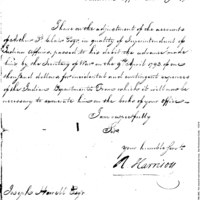 I have on the adjustment of the accounts
of Arthur St. Clair Esqr. in quality of Superintendent of
Indian Affairs, passed to his debit the advance made
him by the Secretary of War on the 9th April 1793 for
thousand dollars for incidental and contingent expences
of the Indian Department a Transcript which it will now be
necessary to on the books of your office
I am respectfully
Sir
your humble Servt.
R Harrison
Joseph Howell Esqr.